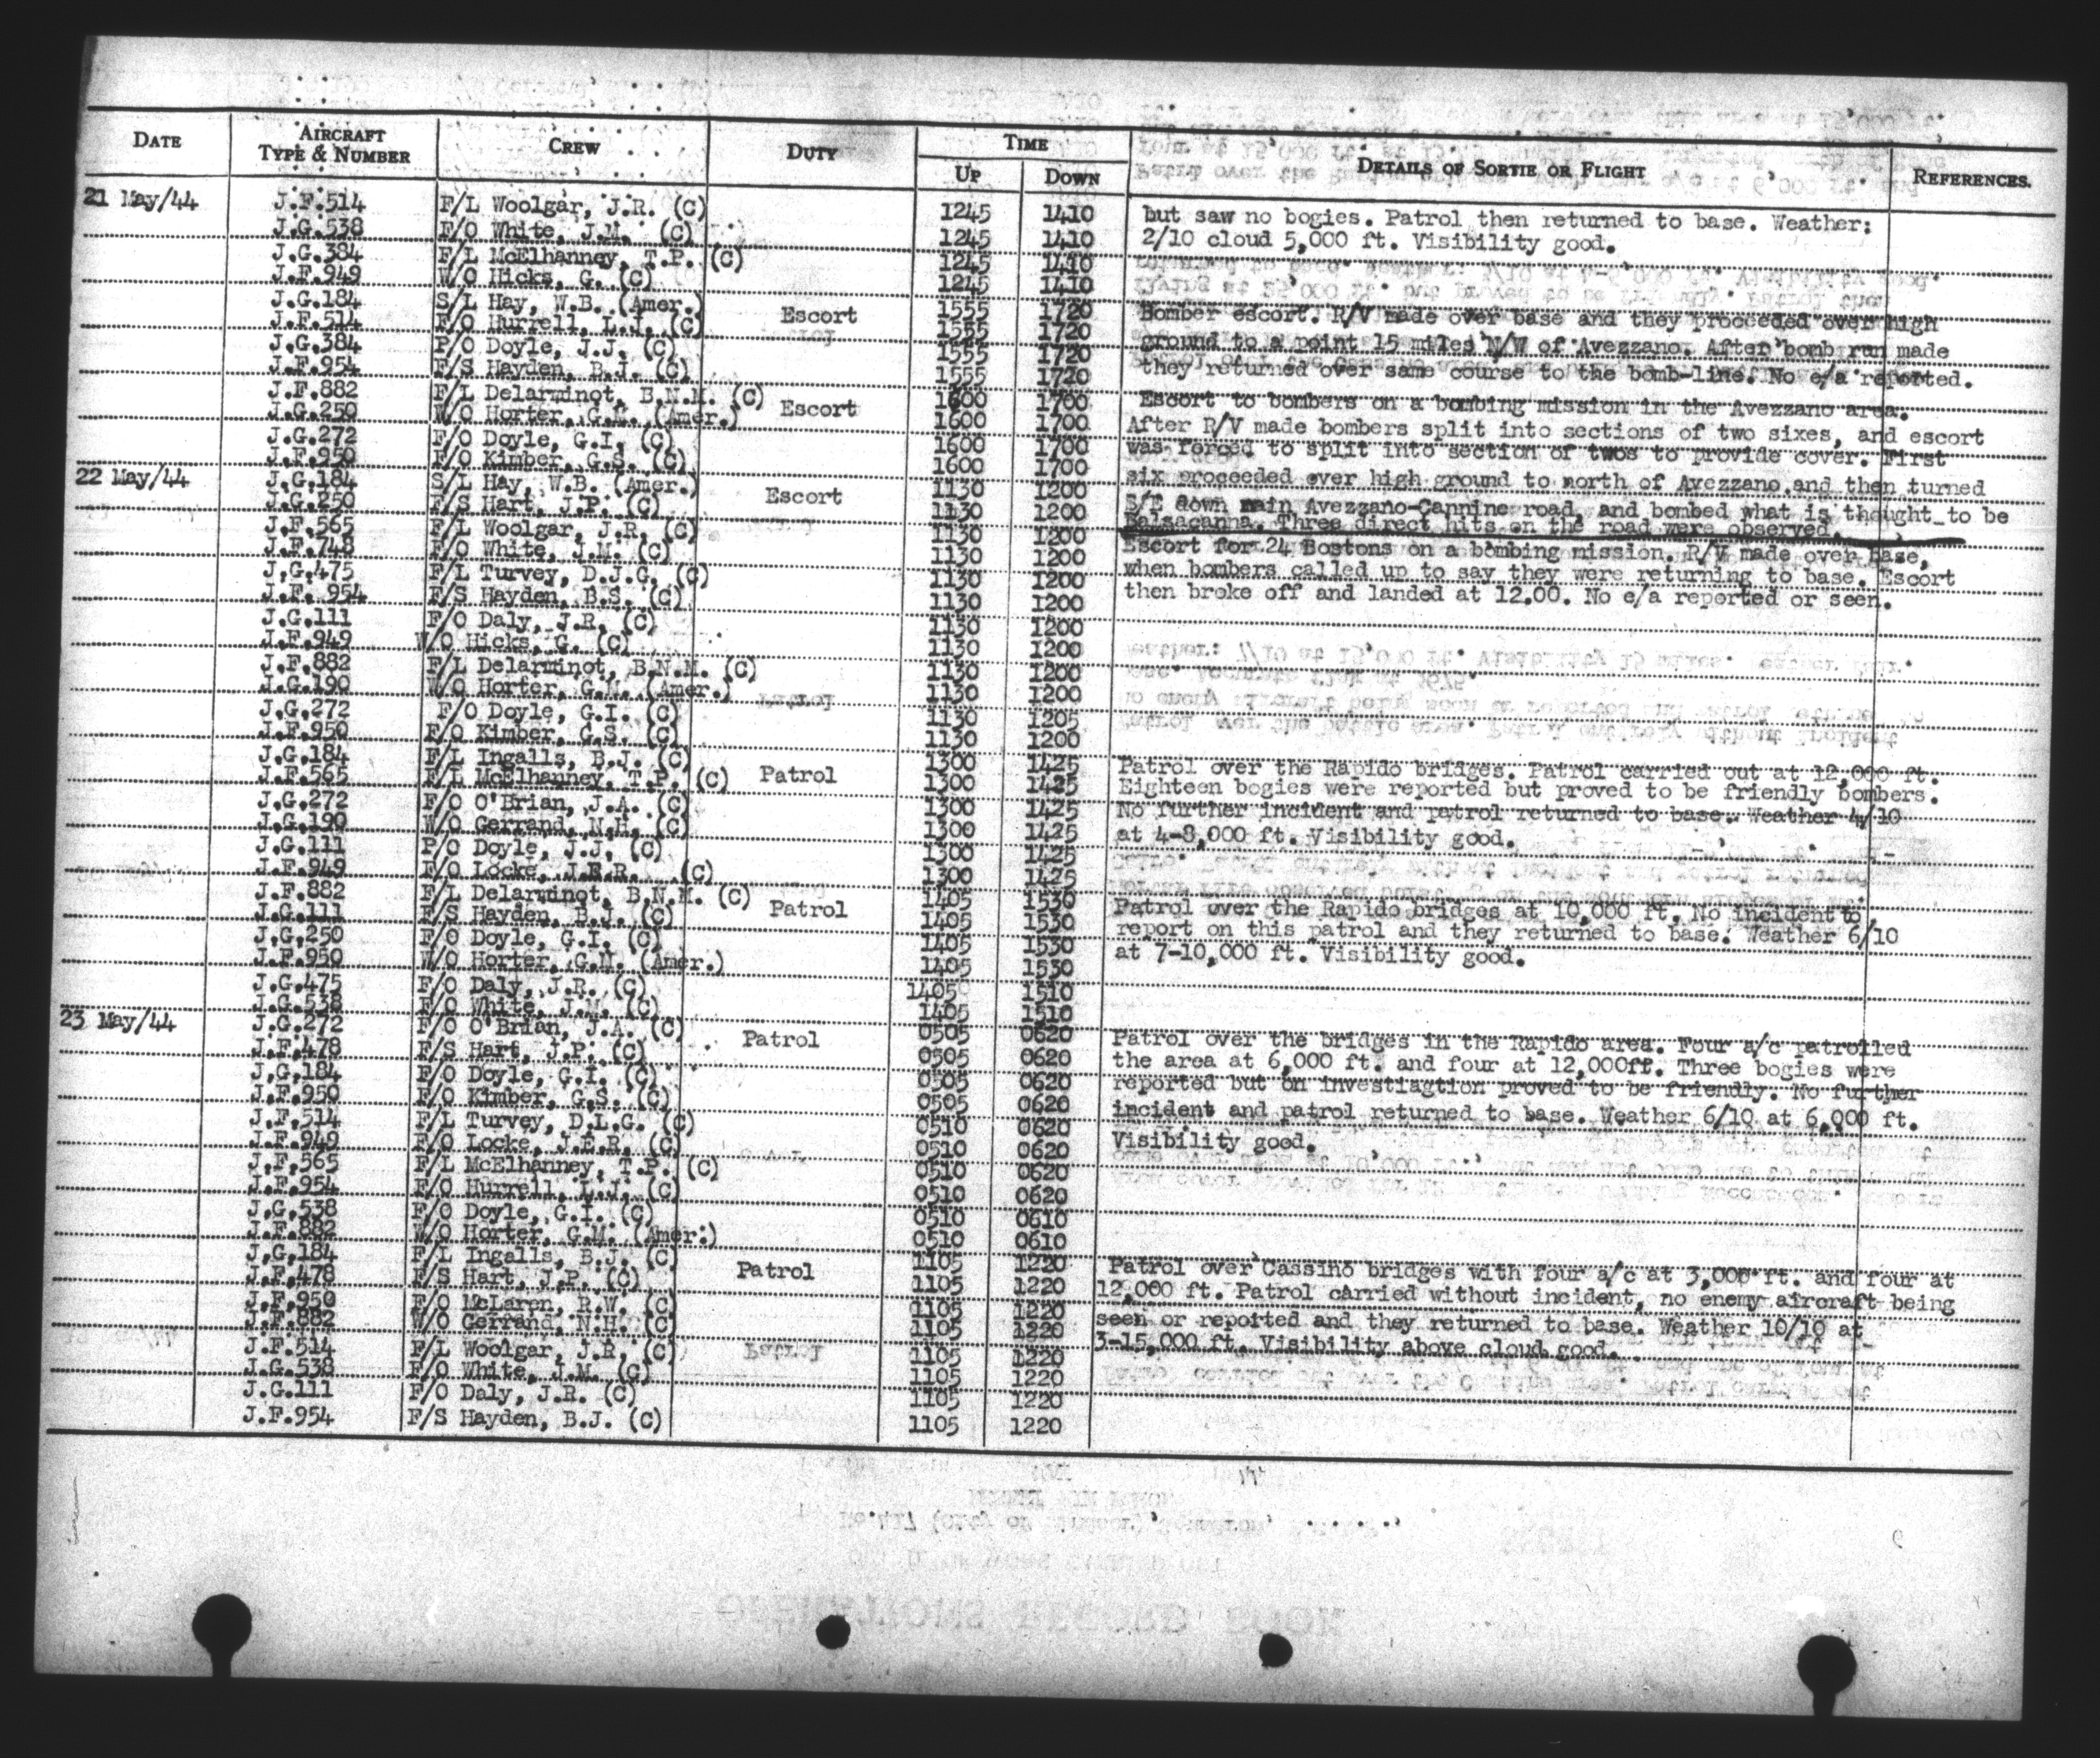 DATE AIRCRAFT TYPE & NUMBER CREW DUTY TIME UP DOWN DETAILS OF SORTIE OR FLIGHT REFERENCES.
21 May/44 J.F.514 F/L Woolgar, J.R. (C) 1245 1410 but saw no bogies. Patrol then returned to base. Weather:
J.G.538 F/O White, J.M. (C) 1245 1410 2/10 cloud 5,000 ft. Visibility good.
J.G.384 F/L McElhanney, T.P. (C) 1245 1410
J.F.949 W/O Hicks, G. (C) 1245 1410
J.G.184 S/L Hay, W.B. (Amer.) Escort 1555 1720 Bomber escort. R/V made over base and they proceeded over high
J.F.514 F/O Hurrell, L.J. (C) 1555 1720 ground to a point 15 miles N/W of Avezzano. After bomb run made
J.G.384 P/O Doyle, J.J. (C) 1555 1720 they returned over same course to the bomb-line. No e/a reported.
J.F.954 F/S Hayden, B.J. (C) 1555 1720
J.F.882 F/L Delarminot, B.N.M. (C) Escort 1600 1700 Escort to bombers on a bombing mission in the Avezzano area.
J.G.250 W/O Horter, G.M. (Amer.) 1600 1700 After R/V made bombers split into sections of two sixes, and escort
J.G.272 F/O Doyle, G.I. (C) 1600 1700 was forced to split into section of twos to provide cover. First
J.F.950 F/O Kimber, G.S. (C) 1600 1700 six proceeded over high ground to north of Avezzano and then turned
22 May/44 J.G.184 S/L Hay, W.B. (Amer.) Escort 1130 1200 S/E down main Avezzano-Cannine road, and bombed what is thought to be
J.G.250 F/S Hart, J.P. (C) 1130 1200 Balsacanna. Three direct hits on the road were observed.
J.F.565 F/L Woolgar, J.R. (C) 1130 1200 Escort for 24 Bostons on a bombing mission. R/V made over base,
J.F.748 F/O White, J.M. (C) 1130 1200 when bombers called up to say they were returning to base. Escort
J.G.475 F/L Turvey, D.J.G. (C) 1130 1200 then broke off and landed at 12.00. No e/a reported or seen.
J.F.954 F/S Hayden, B.S. (C) 1130 1200
J.G.111 F/O Daly, J.R. (C) 1130 1200
J.F.949 W/O Hicks, G. (C) 1130 1200
J.F.882 F/L Delarminot, B.N.M. (C) 1130 1200
J.G.190 W/O Horter, G.M. (Amer.) 1130 1200
J.G.272 F/O Doyle, G.I. (C) 1130 1205
J.F.950 F/O Kimber, G.S. (C) 1130 1200
J.G.184 F/L Ingalls, B.J. (C) Patrol 1300 1425 Patrol over the Rapido bridges. Patrol carried out at 12,000 ft.
J.F.565 F/L McElhanney, T.P. (C) 1300 1425 Eighteen bogies were reported but proved to be friendly bombers.
J.G.272 F/O O'Brian, J.A. (C) 1300 1425 No further incident and patrol returned to base. Weather 4/10
J.G.190 W/O Gerrand, N.H. (C) 1300 1425 at 4-8,000 ft. Visibility good.
J.G.111 P/O Doyle, J.J. (C) 1300 1425
J.F.949 F/O Locke, J.E.R. (C) 1300 1425
J.F.882 F/L Delarminot, B.N.M. (C) Patrol 1405 1530 Patrol over the Rapido bridges at 10,000 ft. No incident to
J.G.111 F/S Hayden, B.J. (C) 1405 1530 report on this patrol and they returned to base. Weather 6/10
J.G.250 F/O Doyle, G.I. (C) 1405 1530 at 7-10,000 ft. Visibility good.
J.F.950 W/O Horter, G.M. (Amer.) 1405 1530
J.G.475 F/O Daly, J.R. (C) 1405 1510
J.G.538 F/O White, J.M. (C) 1405 1510
23 May/44 J.G.272 F/O O'Brian, J.A. (C) Patrol 0505 0620 Patrol over the bridges in the Rapido area. Four a/c patrolled
J.F.478 F/S Hart, J.P. (C) 0505 0620 the area at 6,000 ft. and four at 12,000ft. Three bogies were
J.G.184 F/O Doyle, G.I. (C) 0505 0620 reported but on investiagtion proved to be friendly. No further
J.F.950 F/O Kimber, G.S. (C) 0505 0620 incident and patrol returned to base. Weather 6/10 at 6,000 ft.
J.F.514 F/L Turvey, D.L.G. (C) 0510 0620 Visibility good.
J.F.949 F/O Locke, J.E.R. (C) 0510 0620
J.F.565 F/L McElhanney, T.P. (C) 0510 0620
J.F.954 F/O Hurrell, L.J. (C) 0510 0620
J.G.538 F/O Doyle, G.I. (C) 0510 0610
J.F.882 W/O Horter, G.M. (Amer.) 0510 0610
J.G.184 F/L Ingalls, B.J. (C) Patrol 1105 1220 Patrol over Cassino bridges with four a/c at 3,000 ft. and four at
J.F.478 F/S Hart, J.P. (C) 1105 1220 12,000 ft. Patrol carried without incident, no enemy aircraft being
J.F.950 F/O McLaren, R.W. (C) 1105 1220 seen or reported and they returned to base. Weather 10/10 at
J.F.882 W/O Gerrand, N.H. (C) 1105 1220 3-15,000 ft. Visibility above cloud good.
J.F.514 F/L Woolgar, J.R. (C) 1105 1220
J.G.538 F/O White, J.M. (C) 1105 1220
J.G.111 F/O Daly, J.R. (C) 1105 1220
J.F.954 F/S Hayden, B.J. (C) 1105 1220